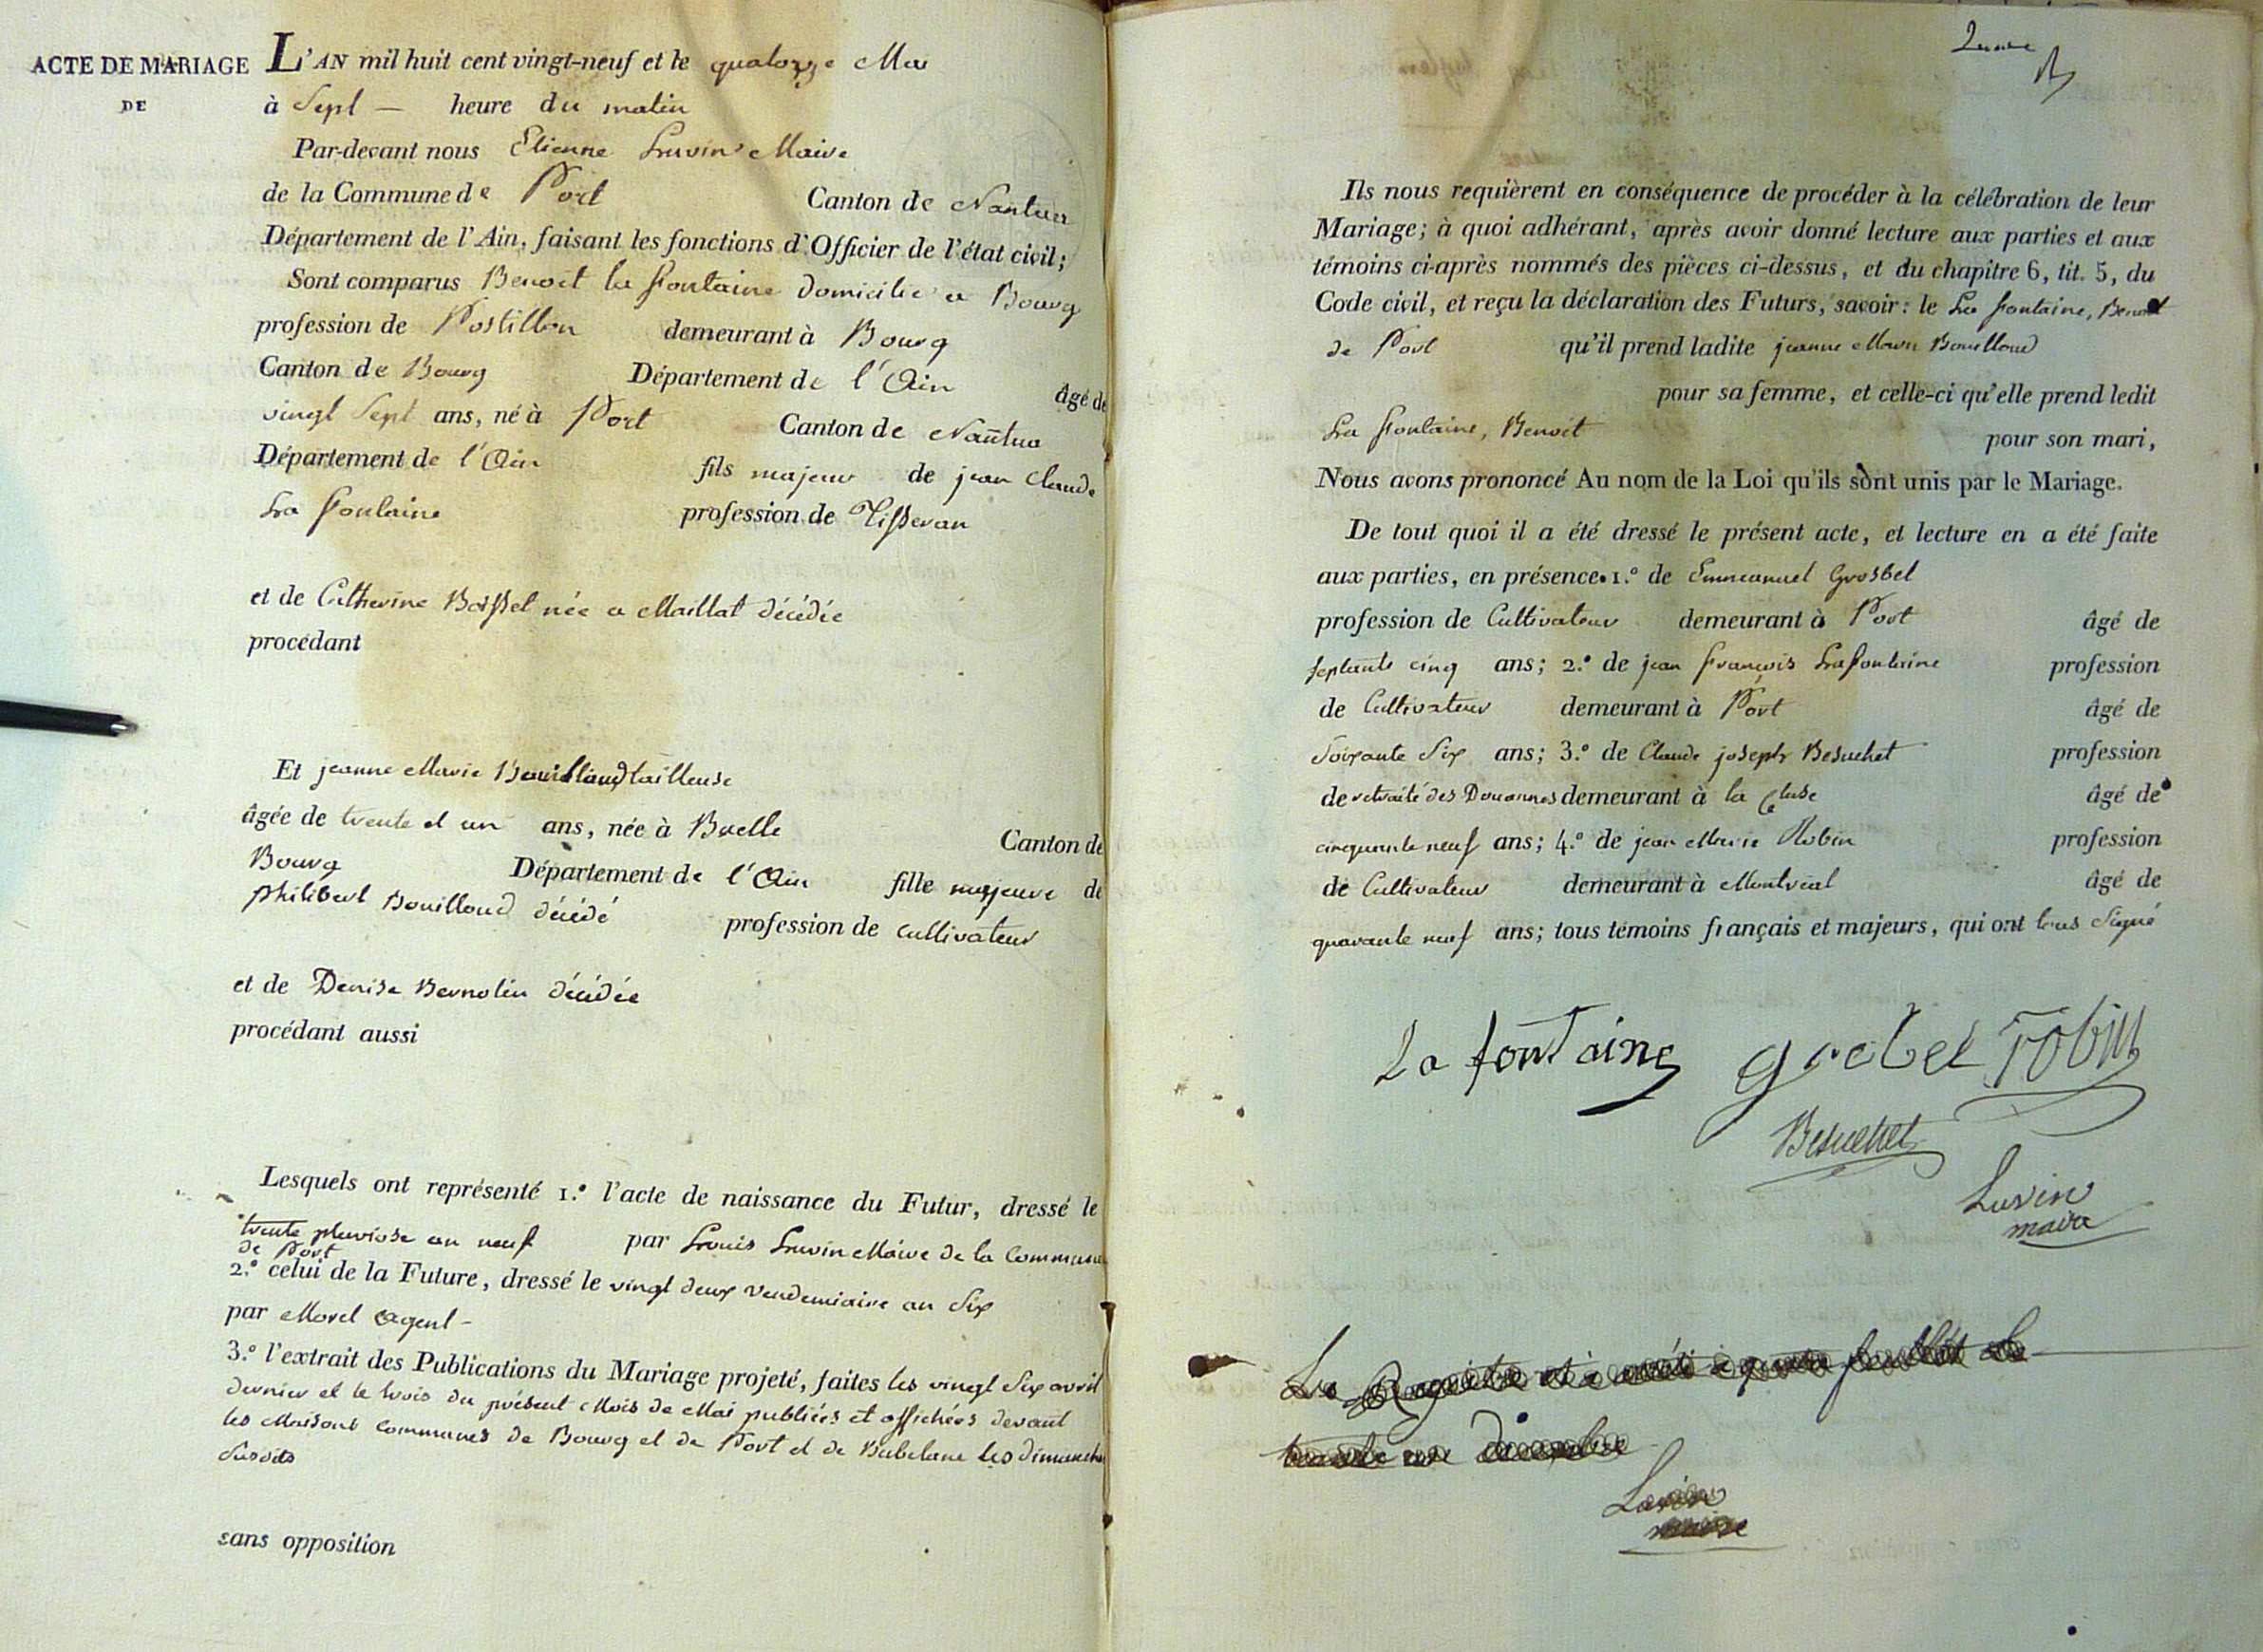 ACTE DE MARIAGE
DE
L'AN mil huit cent vingt-neuf et le quatorze Mai
à Sept — heure du matin
Par-devant nous Etienne Luvin Maire
de la Commune de Port Canton de Nantua
Département de l'Ain, faisant les fonctions d'Officier de l'état civil;
Sont comparus Benoit la fontaine domicilié a Bourg
profession de Postillon demeurant à Bourg
Canton de Bourg Département de l'Ain âgé de
vingt Sept ans, né à Port Canton de Nantua
Département de l'Ain fils majeur de jean Claude
La fontaine profession de Tisseran
et de Catherine née a Maillat décédée
procédant
Et jeanne Marie Bouilloud tailleuse
âgée de trente et un ans, née à Buelle Canton de
Bourg Département de l'Ain fille majeure de
philibert Bouilloud décédé profession de cultivateur
et de Denise Bernolin décédée
procédant aussi
Lesquels ont représenté 1.° l'acte de naissance du Futur, dressé le
trente pluviose an neuf par Louis Luvin Maire de la Commune
de Port
2.° celui de la Future, dressé le vingt deux Vendemiaire an Six
par Morel agent -
3.° l'extrait des Publications du Mariage projeté, faites les vingt Six avril
dernier et le trois du présent Mois de Mai publiées et affichées devant
les Maisons communes de Bourg et de Port et de les dimanche
Susdits
sans opposition
Ils nous requièrent en conséquence de procéder à la célébration de leur
Mariage; à quoi adhérant, après avoir donné lecture aux parties et aux
témoins ci-après nommés des pièces ci-dessus, et du chapitre 6, tit. 5, du
Code civil, et reçu la déclaration des Futurs, savoir: le La fontaine, Benoit
de Port qu'il prend ladite jeanne Marie Bouilloud
pour sa femme, et celle-ci qu'elle prend ledit
La fontaine, Benoit pour son mari,
Nous avons prononcé Au nom de la Loi qu'ils sont unis par le Mariage.
De tout quoi il a été dressé le présent acte, et lecture en a été faite
aux parties, en présence 1.° de Emmanuel Grosbel
profession de Cultivateur demeurant à Port âgé de
septante cinq ans; 2.° de jean François Lafontaine profession
de Cultivateur demeurant à Port âgé de
Soixante Six ans; 3.° de Claude joseph Besuchet profession
de retraité des Douannes demeurant à la Cluse âgé de
cinquante neuf ans; 4.° de jean Marie Robin profession
de Cultivateur demeurant à Montréal âgé de
quarante neuf ans; tous témoins français et majeurs, qui ont tous Signé
La fontaine grobel robin
Besuchet
Luvin
maire
Luvin
maire